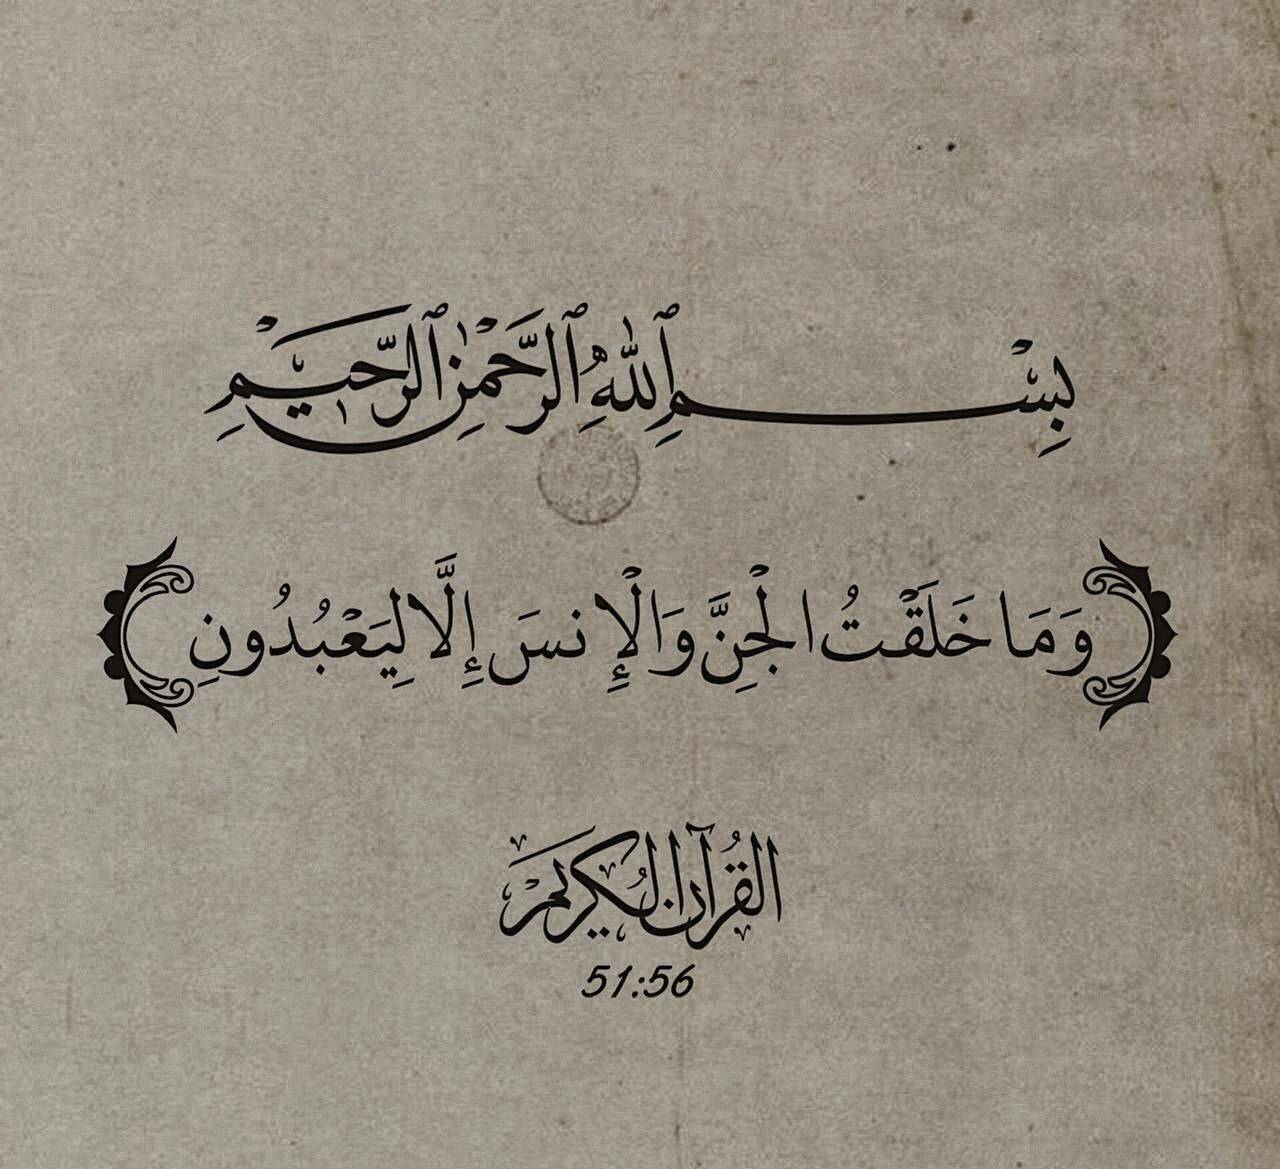 بِسْمِ ٱللَّهِ ٱلرَّحْمَٰنِ ٱلرَّحِيمِ
وَمَا خَلَقْتُ الْجِنَّ وَالْإِنسَ إِلَّا لِيَعْبُدُونِ
القُرآن الكُريم
51:56